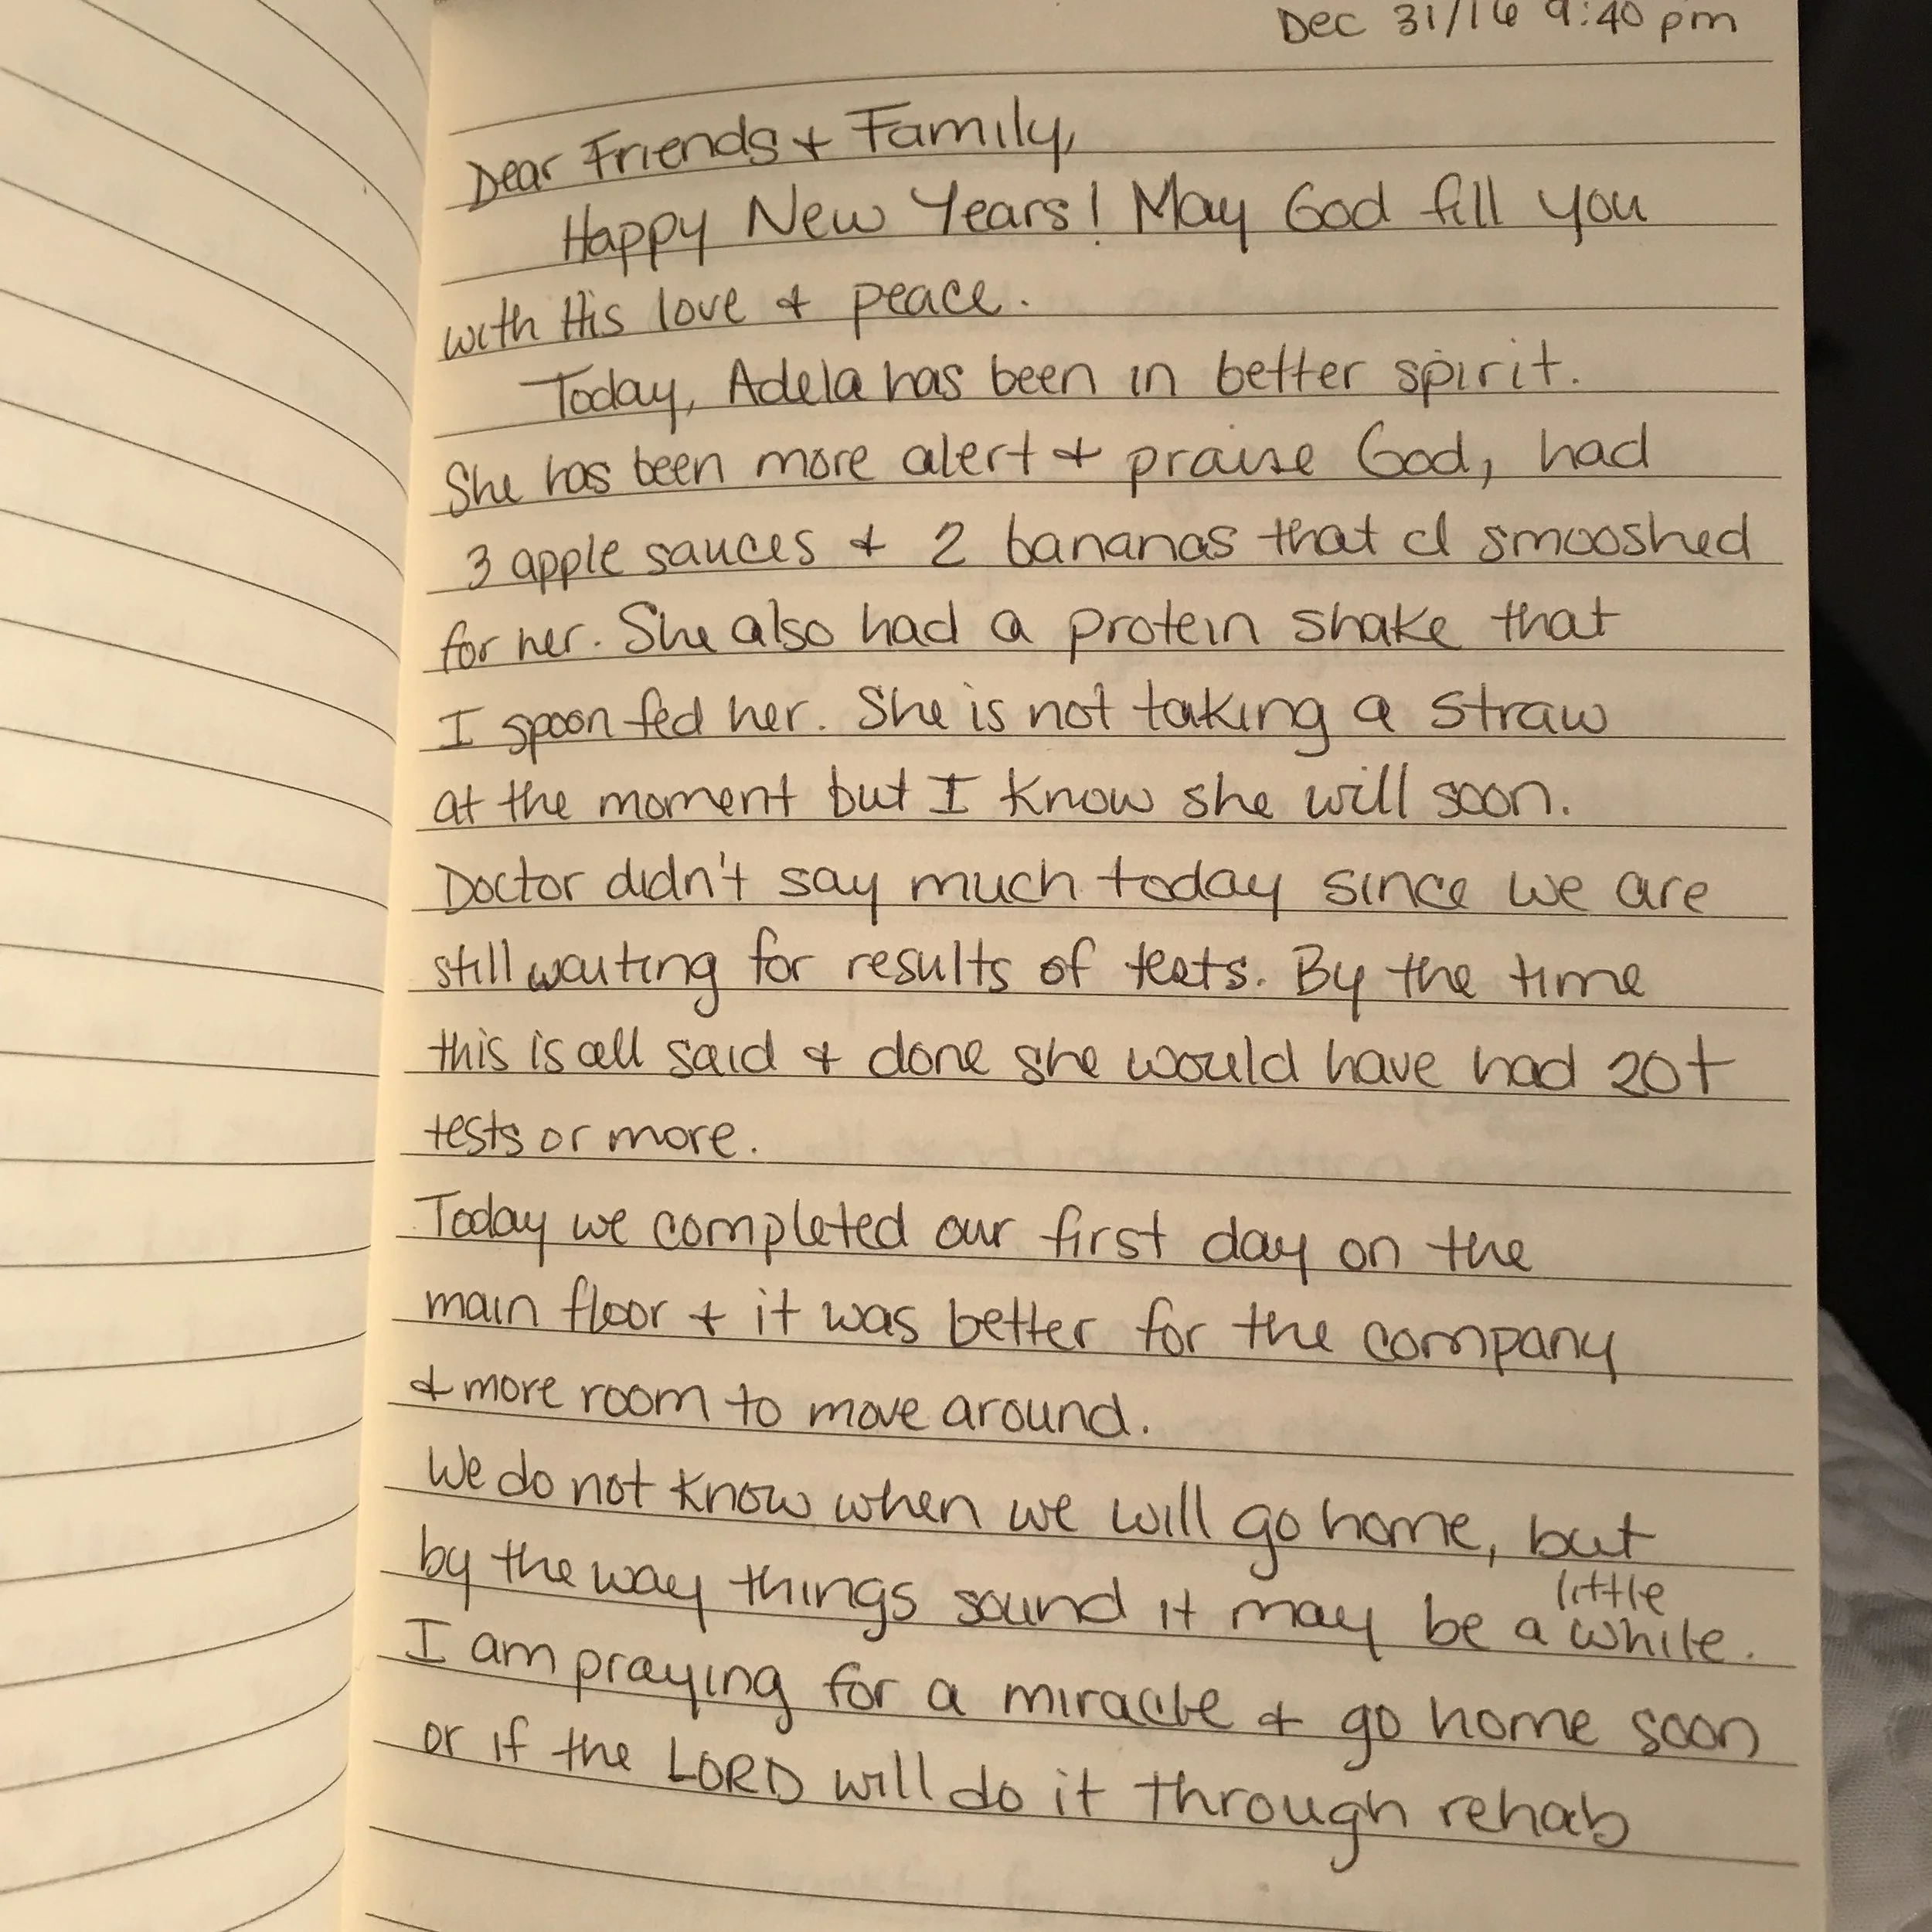 Dec 31/16 9:40 pm
Dear Friends & Family,
Happy New Years! May God fill you
with His love & peace.
Today, Adela has been in better spirit.
She has been more alert & praise God, had
3 apple sauces & 2 bananas that I smooshed
for her. She also had a protein shake that
I spoon fed her. She is not taking a straw
at the moment but I know she will soon.
Doctor didn't say much today since we are
still waiting for results of tests. By the time
this is all said & done she would have had 20+
tests or more.
Today we completed our first day on the
main floor & it was better for the company
& more room to move around.
We do not know when we will go home, but
by the way things sound it may be a little while.
I am praying for a miracle & go home soon
or if the LORD will do it through rehab